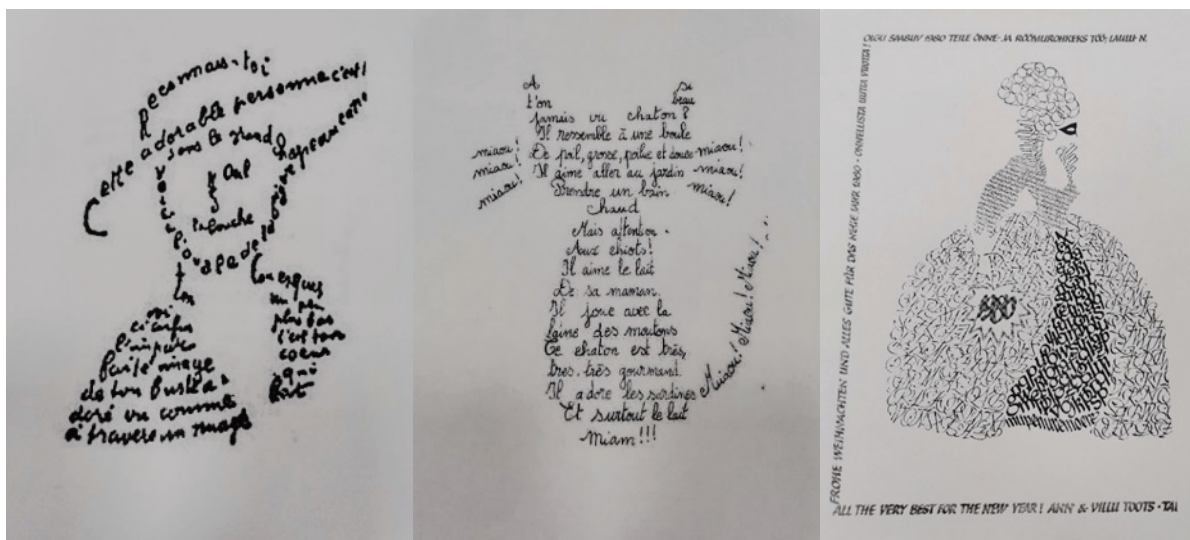 Reconnais-toi
Cette adorable personne c'est toi
Sous le grand chapeau canotier
Oeil
Nez
La bouche
Voici l'ovale de ta figure
Ton cou exquis
Voici enfin
l'imparfaite image
de ton buste adoré
vu comme
à travers un nuage
un peu
plus bas
c'est ton
coeur
qui
bat
A si
t'on beau
jamais vu chaton ?
Il ressemble à une boule
De poil, grosse, polie et douce
Il aime aller au jardin
Prendre un bain
Chaud
miaou!
miaou!
miaou!
miaou!
miaou!
miaou!
Mais attention
Aux chiots!
Il aime le lait
De sa maman.
Il joue avec la
laine des moutons
Ce chaton est très,
très, très gourmand.
Il adore les sardines
Et surtout le lait
Miam!!!
Miaou! Miaou! Miaou!
OLGU SAABUV 1980 TEILE ÕNNE- JA RÕÕMUROHKEKS TÖÖ-, LAULU- N.
FROHE WEIHNACHTEN UND ALLES GUTE FÜR DAS NEUE JAHR 1980 · ONNELLISTA UUTTA VUOTTA!
1980
ALL THE VERY BEST FOR THE NEW YEAR! ANN & VILLU TOOTS · TAL